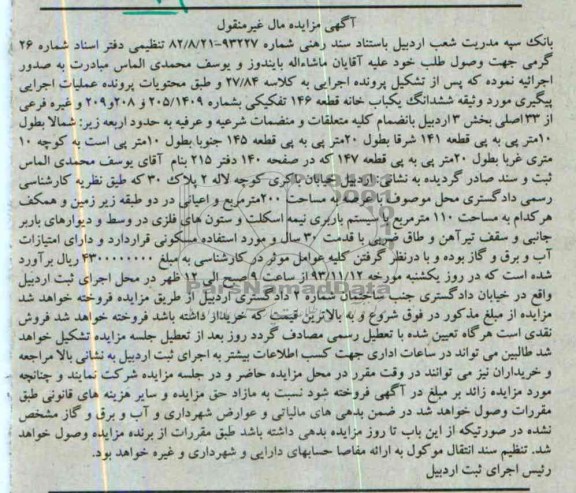 آگهی مزایده مال غیرمنقول
بانک سپه مدیریت شعب اردبیل باستناد سند رهنی شماره ۹۳۲۲۷-۸۲/۸/۲۱ تنظیمی دفتر اسناد شماره ۲۶
گرمی جهت وصول طلب خود علیه آقایان ماشاءاله بایندوز و یوسف محمدی الماس مبادرت به صدور
اجرائیه نموده که پس از تشکیل پرونده اجرایی به کلاسه ۲۷/۸۴ و طبق محتویات پرونده عملیات اجرایی
پیگیری مورد وثیقه ششدانگ یکباب خانه قطعه ۱۴۶ تفکیکی بشماره ۲۰۵/۱۴۰۹ و ۲۰۸و۲۰۹ و غیره فرعی
از ۳۳اصلی بخش ۳اردبیل بانضمام کلیه متعلقات و منضمات شرعیه و عرفیه به حدود اربعه زیر: شمالا بطول
۱۰متر پی به پی قطعه ۱۴۱ شرقا بطول ۲۰متر پی به پی قطعه ۱۴۵ جنوبا بطول ۱۰متر پی است به کوچه ۱۰
متری غربا بطول ۲۰متر پی به پی قطعه ۱۴۷ که در صفحه ۱۴۰ دفتر ۲۱۵ بنام آقای یوسف محمدی الماس
ثبت و سند صادر گردیده به نشانی: اردبیل خیابان باکری کوچه لاله ۲ پلاک ۳۰ که طبق نظریه کارشناسی
رسمی دادگستری محل موصوف با عرصه به مساحت ۲۰۰مترمربع و اعیانی در دو طبقه زیر زمین و همکف
هرکدام به مساحت ۱۱۰ مترمربع با سیستم باربری نیمه اسکلت و ستون های فلزی در وسط و دیوارهای باربر
جانبی و سقف تیرآهن و طاق ضربی با قدمت ۳۰ سال و مورد استفاده مسکونی قراردارد و دارای امتیازات
آب و برق و گاز بوده و با درنظر گرفتن کلیه عوامل موثر در کارشناسی به مبلغ ۴۳۰۰۰۰۰۰۰۰ ریال برآورد
شده است که در روز یکشنبه مورخه ۹۳/۱۱/۱۲ از ساعت ۹صبح الی ۱۲ ظهر در محل اجرای ثبت اردبیل
واقع در خیابان دادگستری جنب ساختمان شماره ۲ دادگستری اردبیل از طریق مزایده فروخته خواهد شد
مزایده از مبلغ مذکور در فوق شروع و به بالاترین قیمت که خریدار داشته باشد فروخته خواهد شد فروش
نقدی است هرگاه تعیین شده با تعطیل رسمی مصادف گردد روز بعد از تعطیل جلسه مزایده تشکیل خواهد
شد طالبین می تواند در ساعات اداری جهت کسب اطلاعات بیشتر به اجرای ثبت اردبیل به نشانی بالا مراجعه
و خریداران نیز می توانند در وقت مقرر در محل مزایده حاضر و در جلسه مزایده شرکت نمایند و چنانچه
مورد مزایده زائد بر مبلغ در آگهی فروخته شود نسبت به مازاد حق مزایده و سایر هزینه های قانونی طبق
مقررات وصول خواهد شد در ضمن بدهی های مالیاتی و عوارض شهرداری و آب و برق و گاز مشخص
نشده در صورتیکه از این باب تا روز مزایده بدهی داشته باشد طبق مقررات از برنده مزایده وصول خواهد
شد. تنظیم سند انتقال موکول به ارائه مفاصا حسابهای دارایی و شهرداری و غیره خواهد بود.
رئیس اجرای ثبت اردبیل